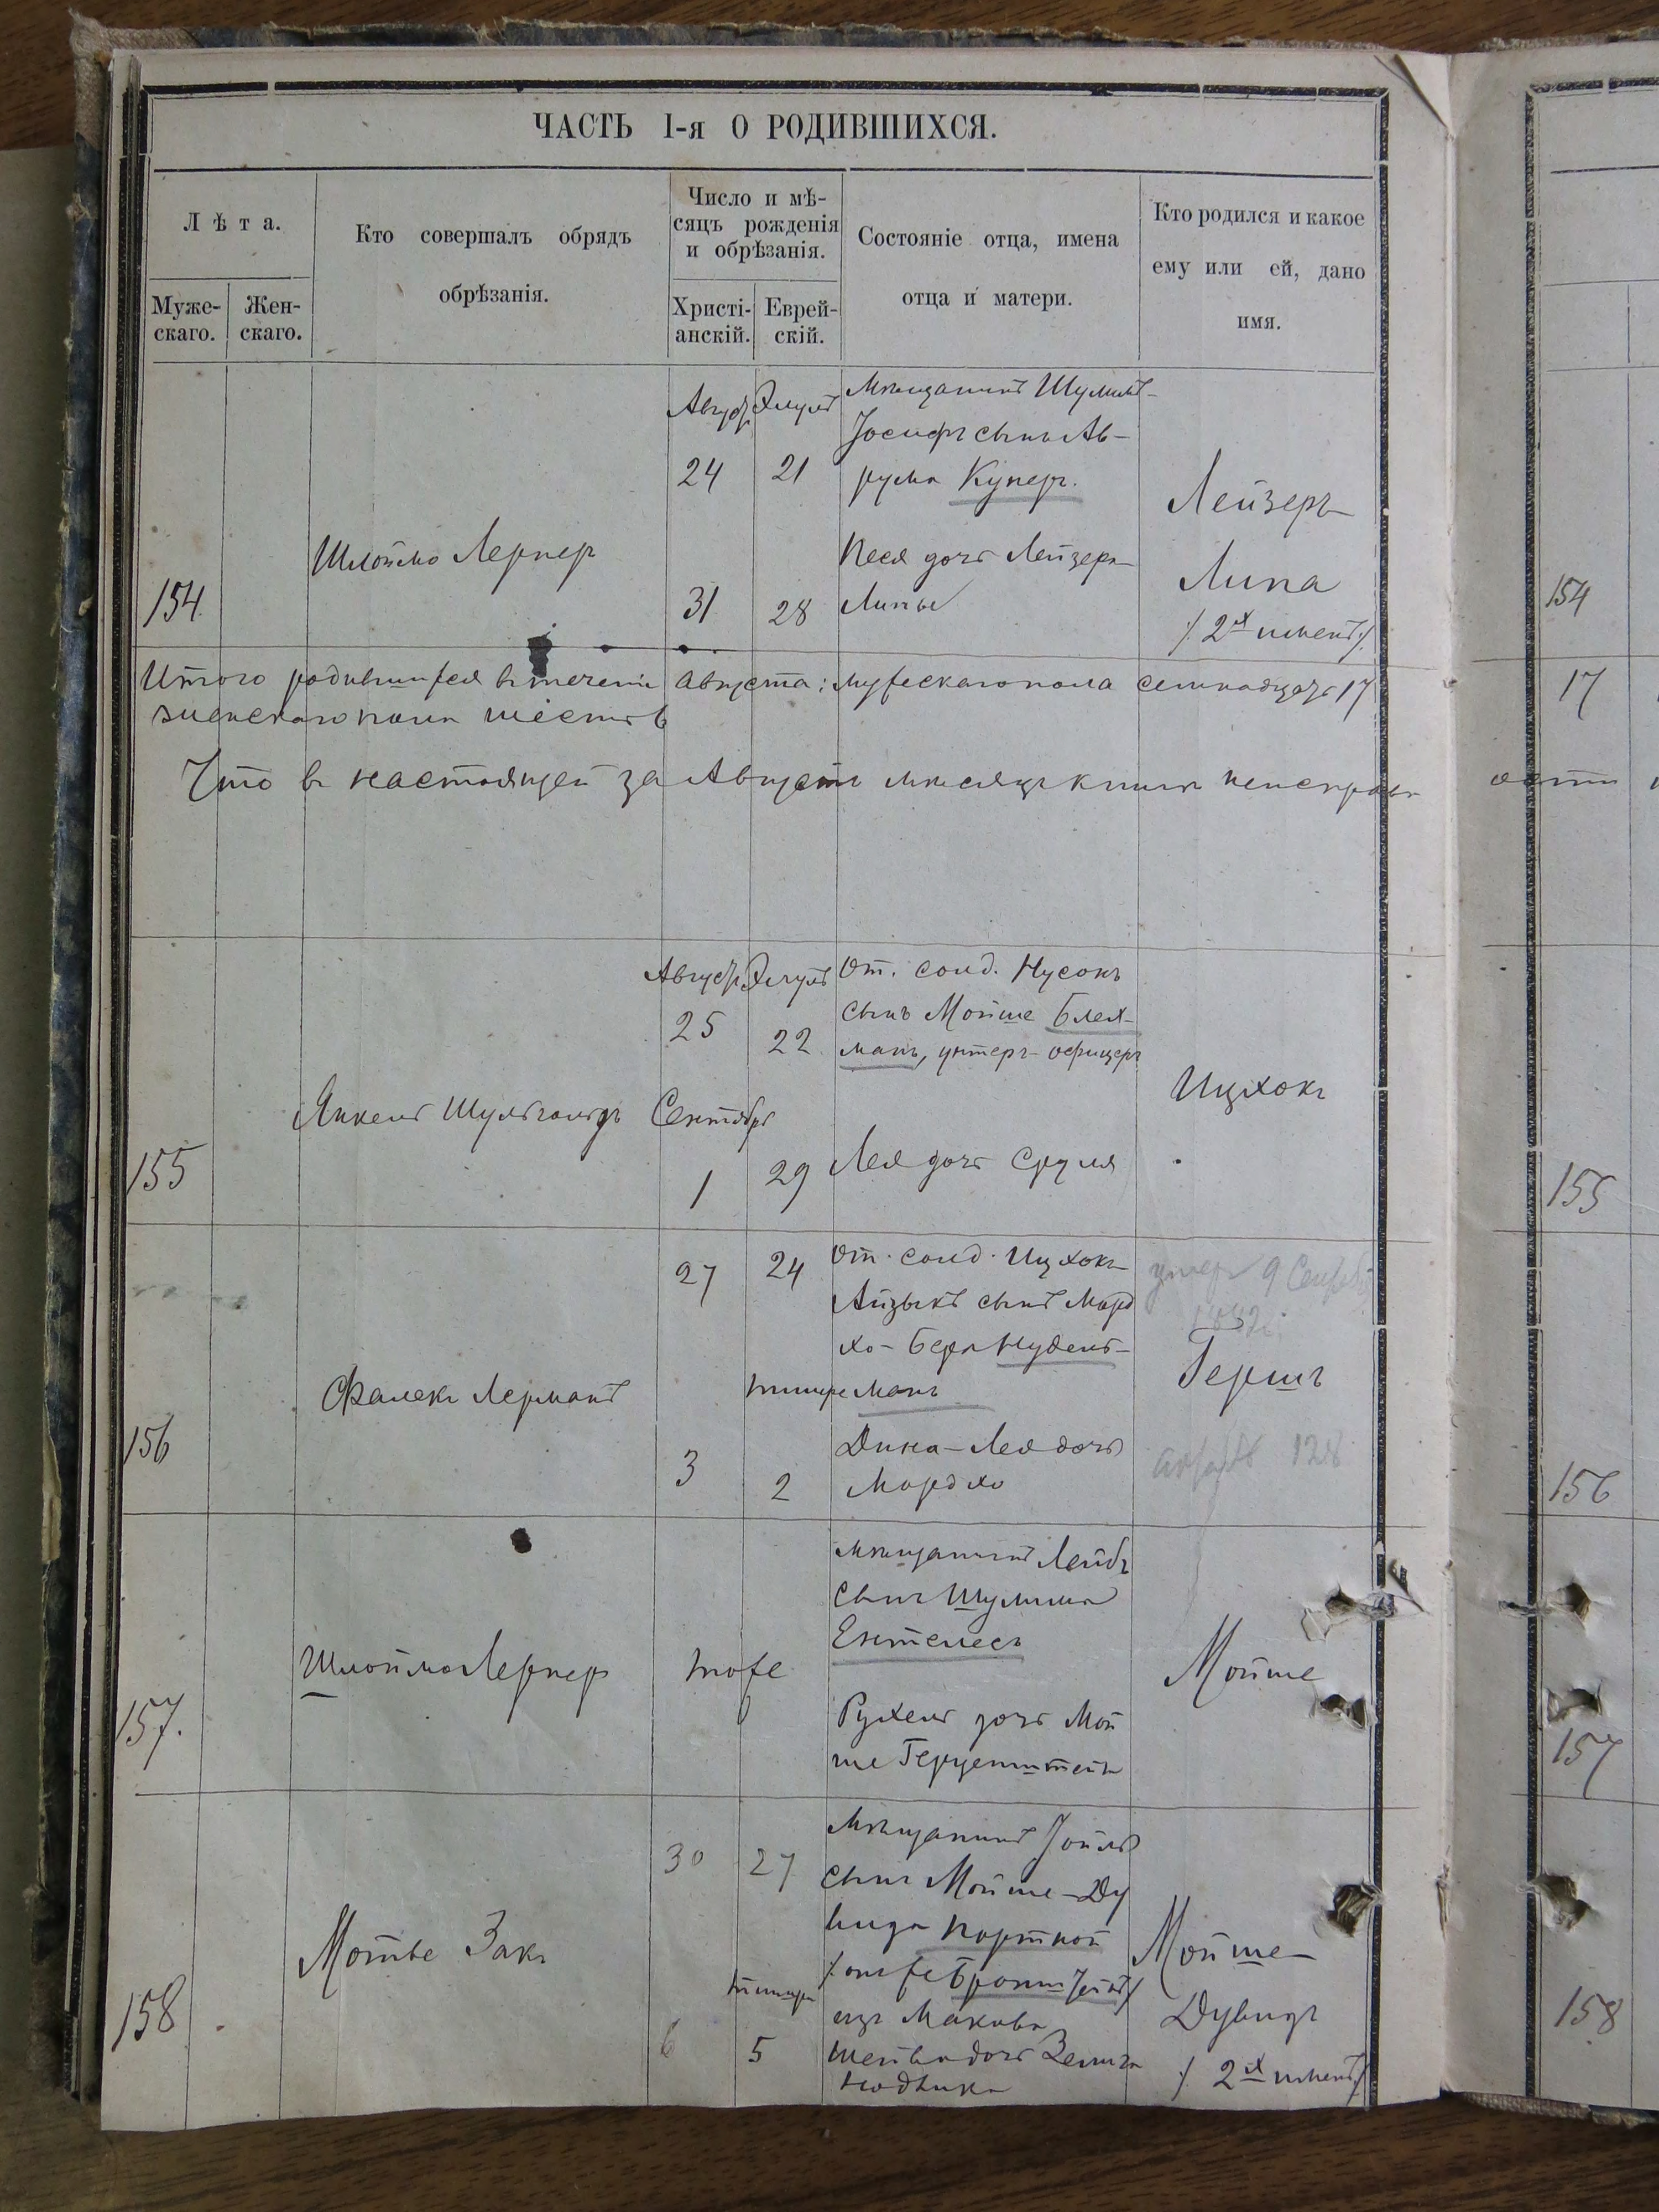 ЧАСТЬ I-я О РОДИВШИХСЯ.
Лѣта.
Муже-
скаго.
Жен-
скаго.
Кто совершалъ обрядъ
обрѣзанія.
Число и мѣ-
сяцъ рожденія
и обрѣзанія.
Христі-
анскій.
Еврей-
скій.
Состояніе отца, имена
отца и матери.
Кто родился и какое
ему или ей, дано
имя.
154
Шлоймо Лернер
Август Элулъ
24 21
31 28
Мѣщанинъ Шулимъ-
Јосифъ сынъ Ав-
рума Куперъ.
Песя дочь Лейзера
Липы
Лейзеръ-
Липа
/ 2х именъ/.
154
Итого родившихся въ теченіи августа: мужескаго пола семнадцать 17
женскаго пола шесть 6
17
Что въ настоящей за Августъ мѣсяцъ книги неисправ
ости
155
Янкель Шульгольдъ
Август Элулъ
25 22
Сентябрь
1 29
От. солд. Нусонъ
сынъ Мойше Блех-
манъ, унтеръ-офицеръ
Лея дочь Сруля
Ицхокъ
155
156
Фалекъ Лерманъ
27 24
тишре
3 2
От. солд. Ицхокъ-
Айзыкъ сынъ Морд
хо-Бера Нудель-
манъ
Дина-Лея дочь
Мордхо
умеръ 9 Сентяб
Гершъ
128
156
157.
Шлоймо Лернер
тоже
мѣщанинъ Лейбъ
сынъ Шулима
Ентелесъ
Рухель дочь Мой
ше Герценштейн
Мойше
157
158
Мотье Закъ
30 27
тишре
6 5
Мѣщанинъ Јойлъ
сынъ Мойше-Ду
вида Портной
из Макова
Шейва дочь Зелига
Мойше-
Дувидъ
/ 2х именъ/
158